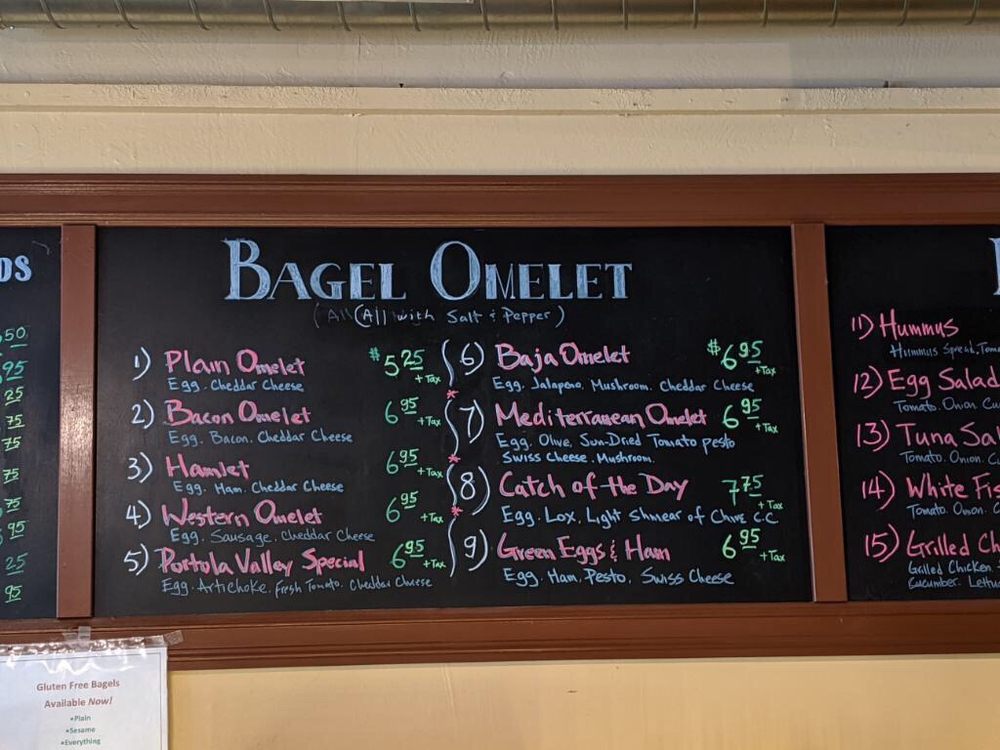 DS
50
95
25
75
75
75
75
95
25
95
BAGEL OMELET
(All with Salt & Pepper)
1) Plain Omelet $5.25 + Tax
Egg. Cheddar Cheese
2) Bacon Omelet 6.95 + Tax
Egg. Bacon. Cheddar Cheese
3) Hamlet 6.95 + Tax
Egg. Ham. Cheddar Cheese
4) Western Omelet 6.95 + Tax
Egg. Sausage. Cheddar Cheese
5) Portola Valley Special 6.95 + Tax
Egg. Artichoke. Fresh Tomato. Cheddar Cheese
6) Baja Omelet $6.95 + Tax
Egg. Jalapeno. Mushroom. Cheddar Cheese
7) Mediterranean Omelet 6.95 + Tax
Egg. Olive. Sun-Dried Tomato pesto
Swiss Cheese. Mushroom.
8) Catch of the Day 7.75 + Tax
Egg. Lox. Light Shmear of Chive C.C
9) Green Eggs & Ham 6.95 + Tax
Egg. Ham. Pesto. Swiss Cheese
11) Hummus
Hummus Spread, Toma
12) Egg Salad
Tomato. Onion. Cu
13) Tuna Sal
Tomato. Onion. C
14) White Fis
Tomato. Onion. C
15) Grilled Ch
Grilled Chicken
Cucumber. Lettu
Gluten Free Bagels
Available Now!
•Plain
•Sesame
•Everything